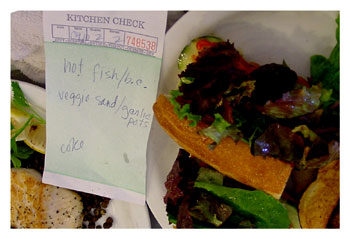 KITCHEN CHECK
748538
hot fish/bac.
veggie sand/garlic
pots
coke